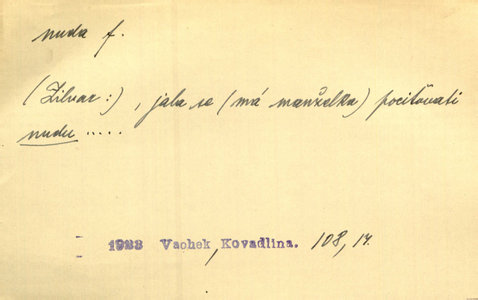 nuda f.
(Žilvar:), jala se (má manželka) pociťovati
nudu .....
1923 Vachek, Kovadlina. 108, 14.